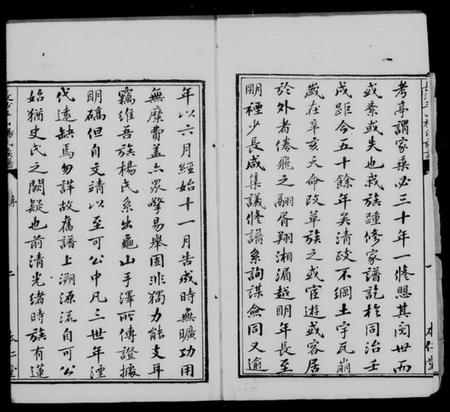 考亭謂家乘必三十年一修懼其閱世而
或紊或失也我族踵修家譜訖於同治壬
戌距今五十餘年矣清政不綱土宇瓦崩
歲在辛亥天命改革族之或宦遊或客居
於外者倦飛之翮胥翔湘湄越明年長至
明禋少長咸集議修譜系詢謀僉同又逾
年以六月經始十一月告成時無曠功用
無糜費蓋亦眾擎易舉固非獨力能支耳
竊維吾族楊氏系出龜山手澤所傳證據
明礄但自文靖以至可公中凡三世年湮
代遠缺焉勿詳故舊譜上溯源流自可公
始猶史氏之闕疑也前清光緒時族有蓮
二